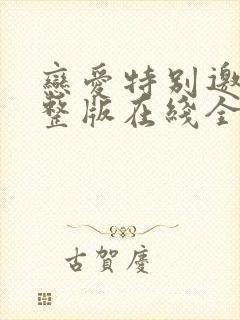 戀愛特別邀
整版在綫全
古賀慶